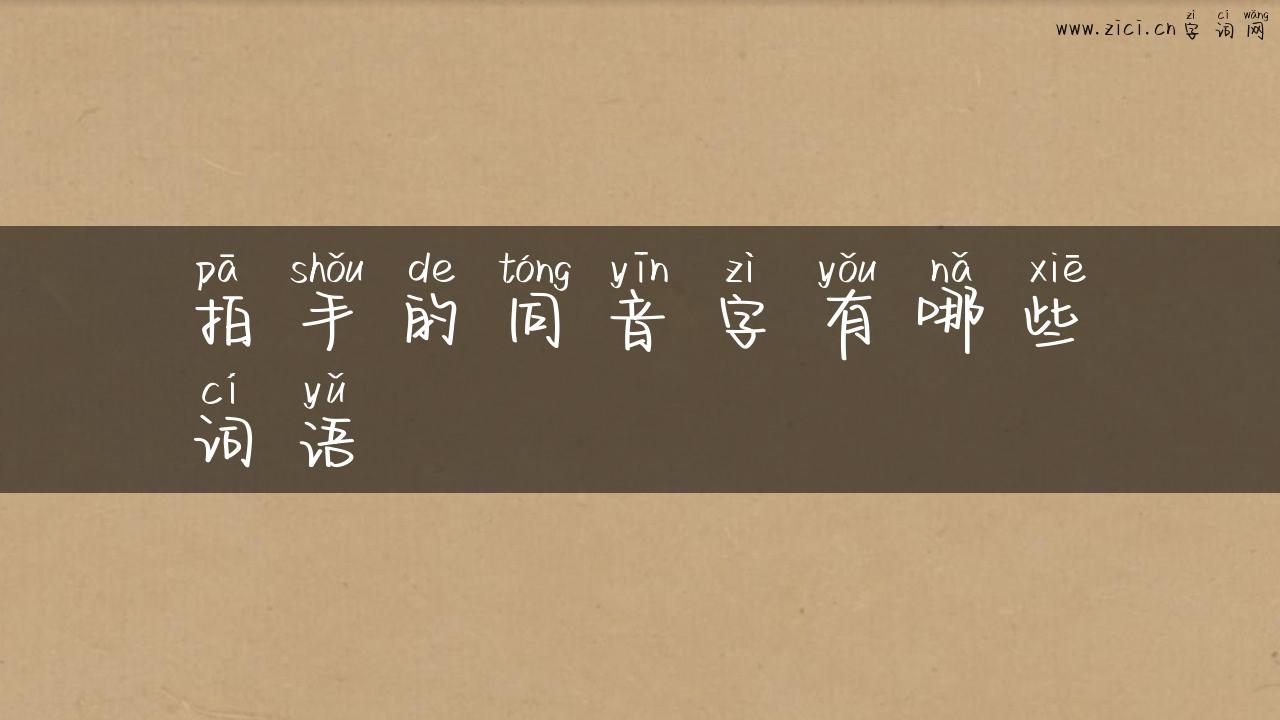 zì cí wǎng
www.zici.cn 字词网
pā shǒu de tóng yīn zì yǒu nǎ xiē
拍手的同音字有哪些
cí yǔ
词语